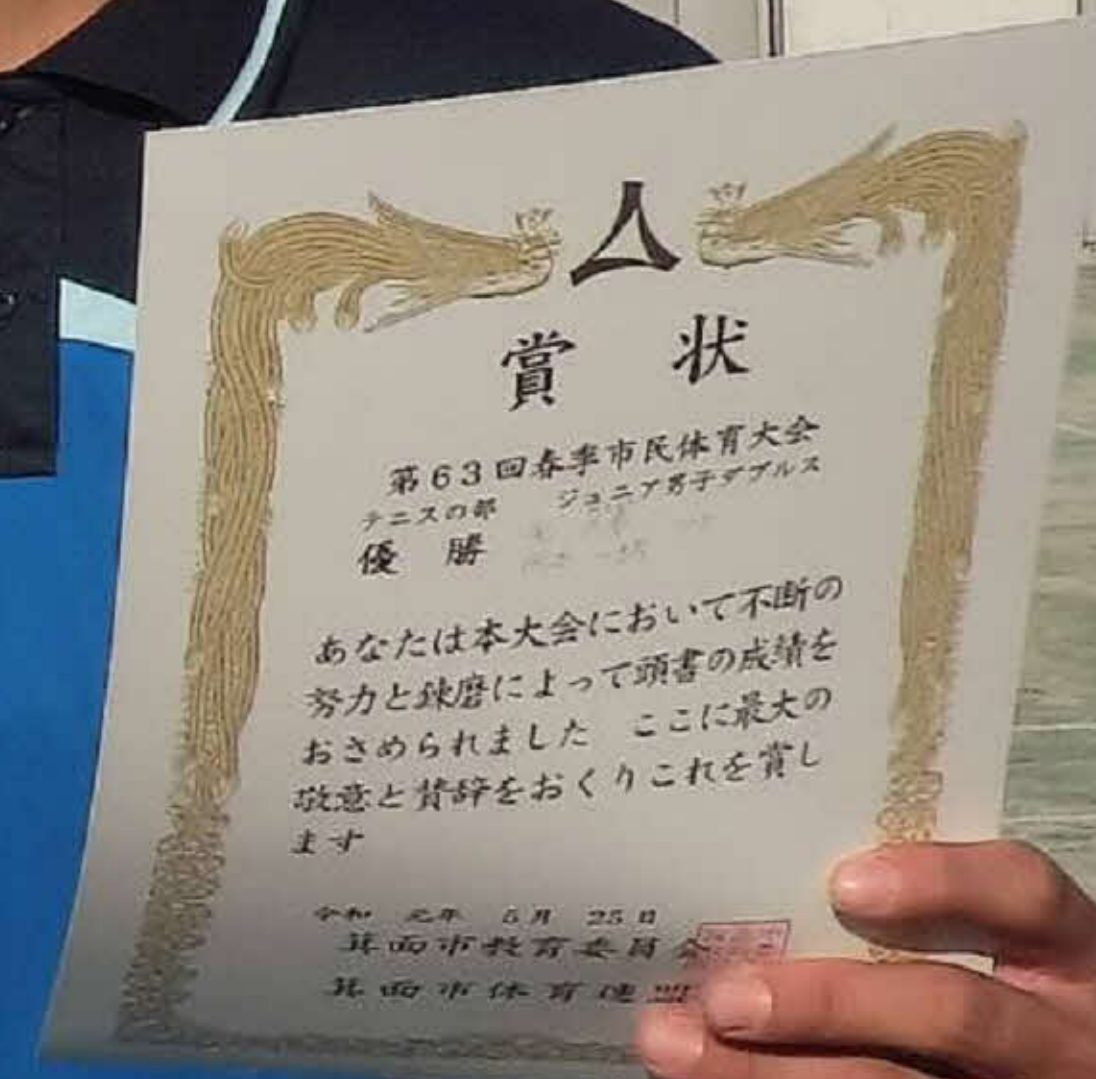 賞 状
第63回春季市民体育大会
テニスの部 ジュニア男子ダブルス
優 勝
あなたは本大会において不断の
努力と錬磨によって頭書の成績を
おさめられました ここに最大の
敬意と賛辞をおくりこれを賞し
ます
令和 元年 5月 25日
箕面市教育委員会
箕面市体育連盟